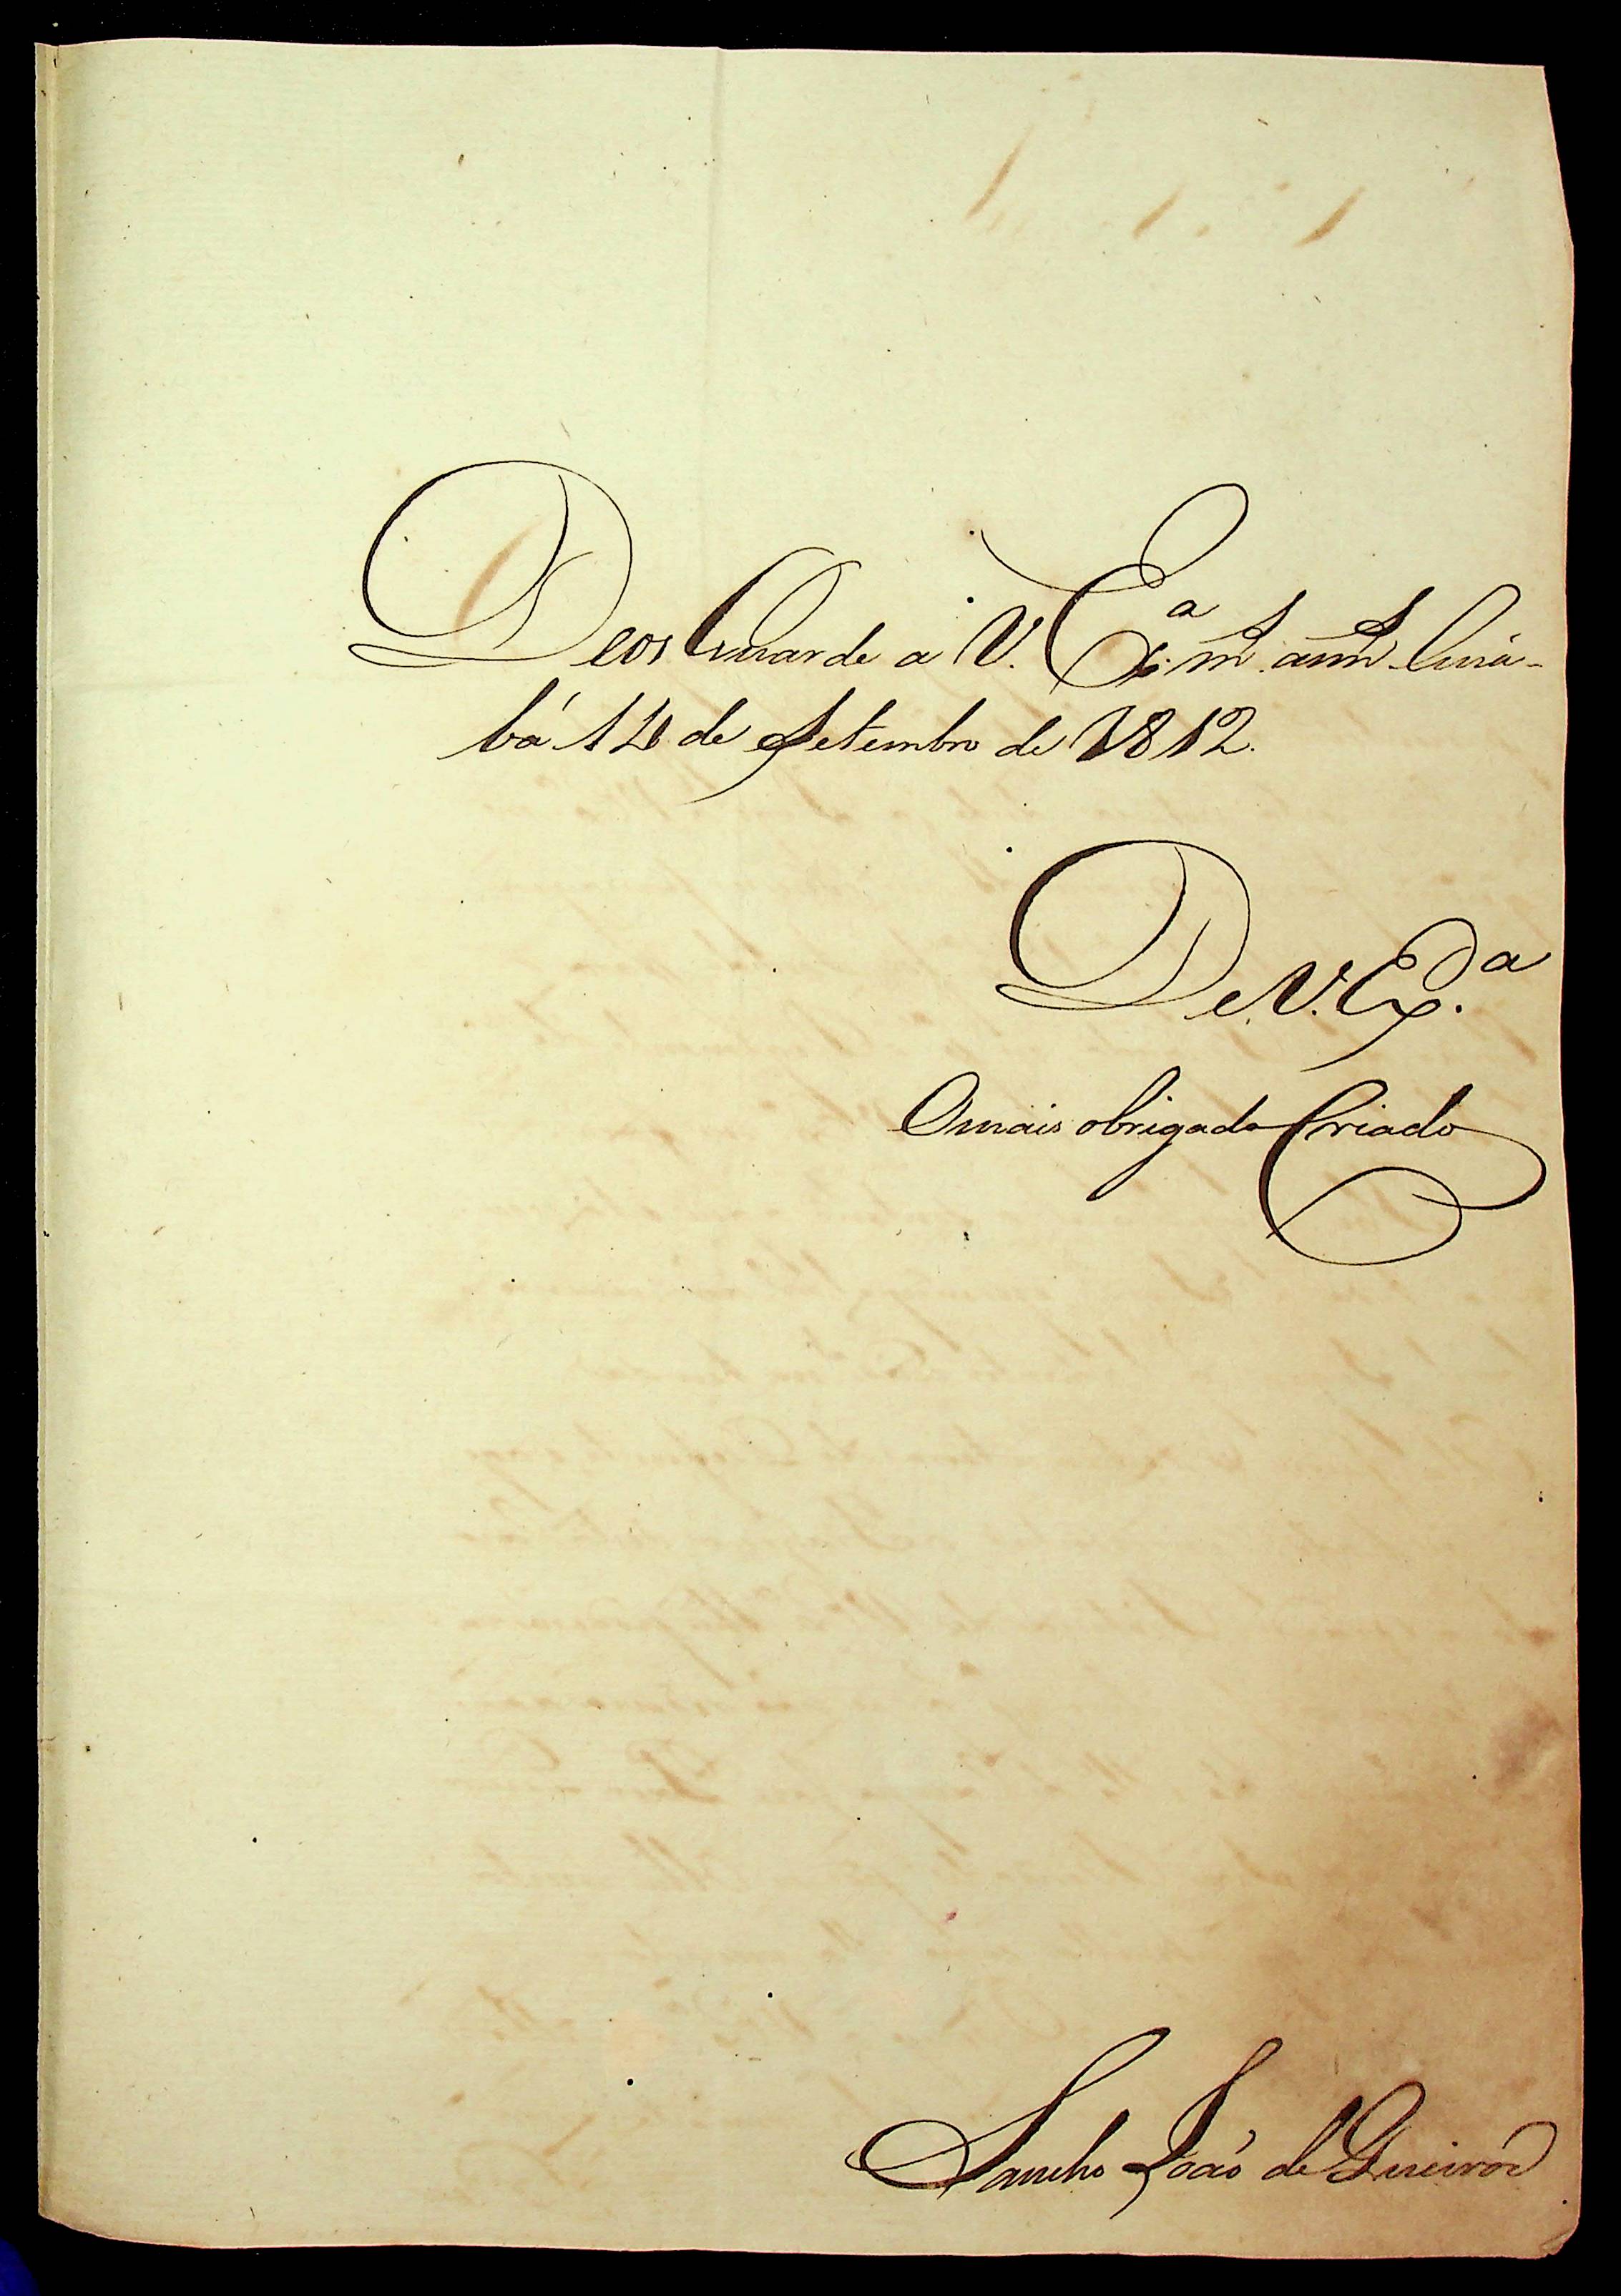 Deos Guarde a V. Ex.ª m.s ann.s Cuia-
bá 14 de Setembro de 1812.
De V. Ex.ª
O mais obrigado Criado
Sancho João de Queiróz